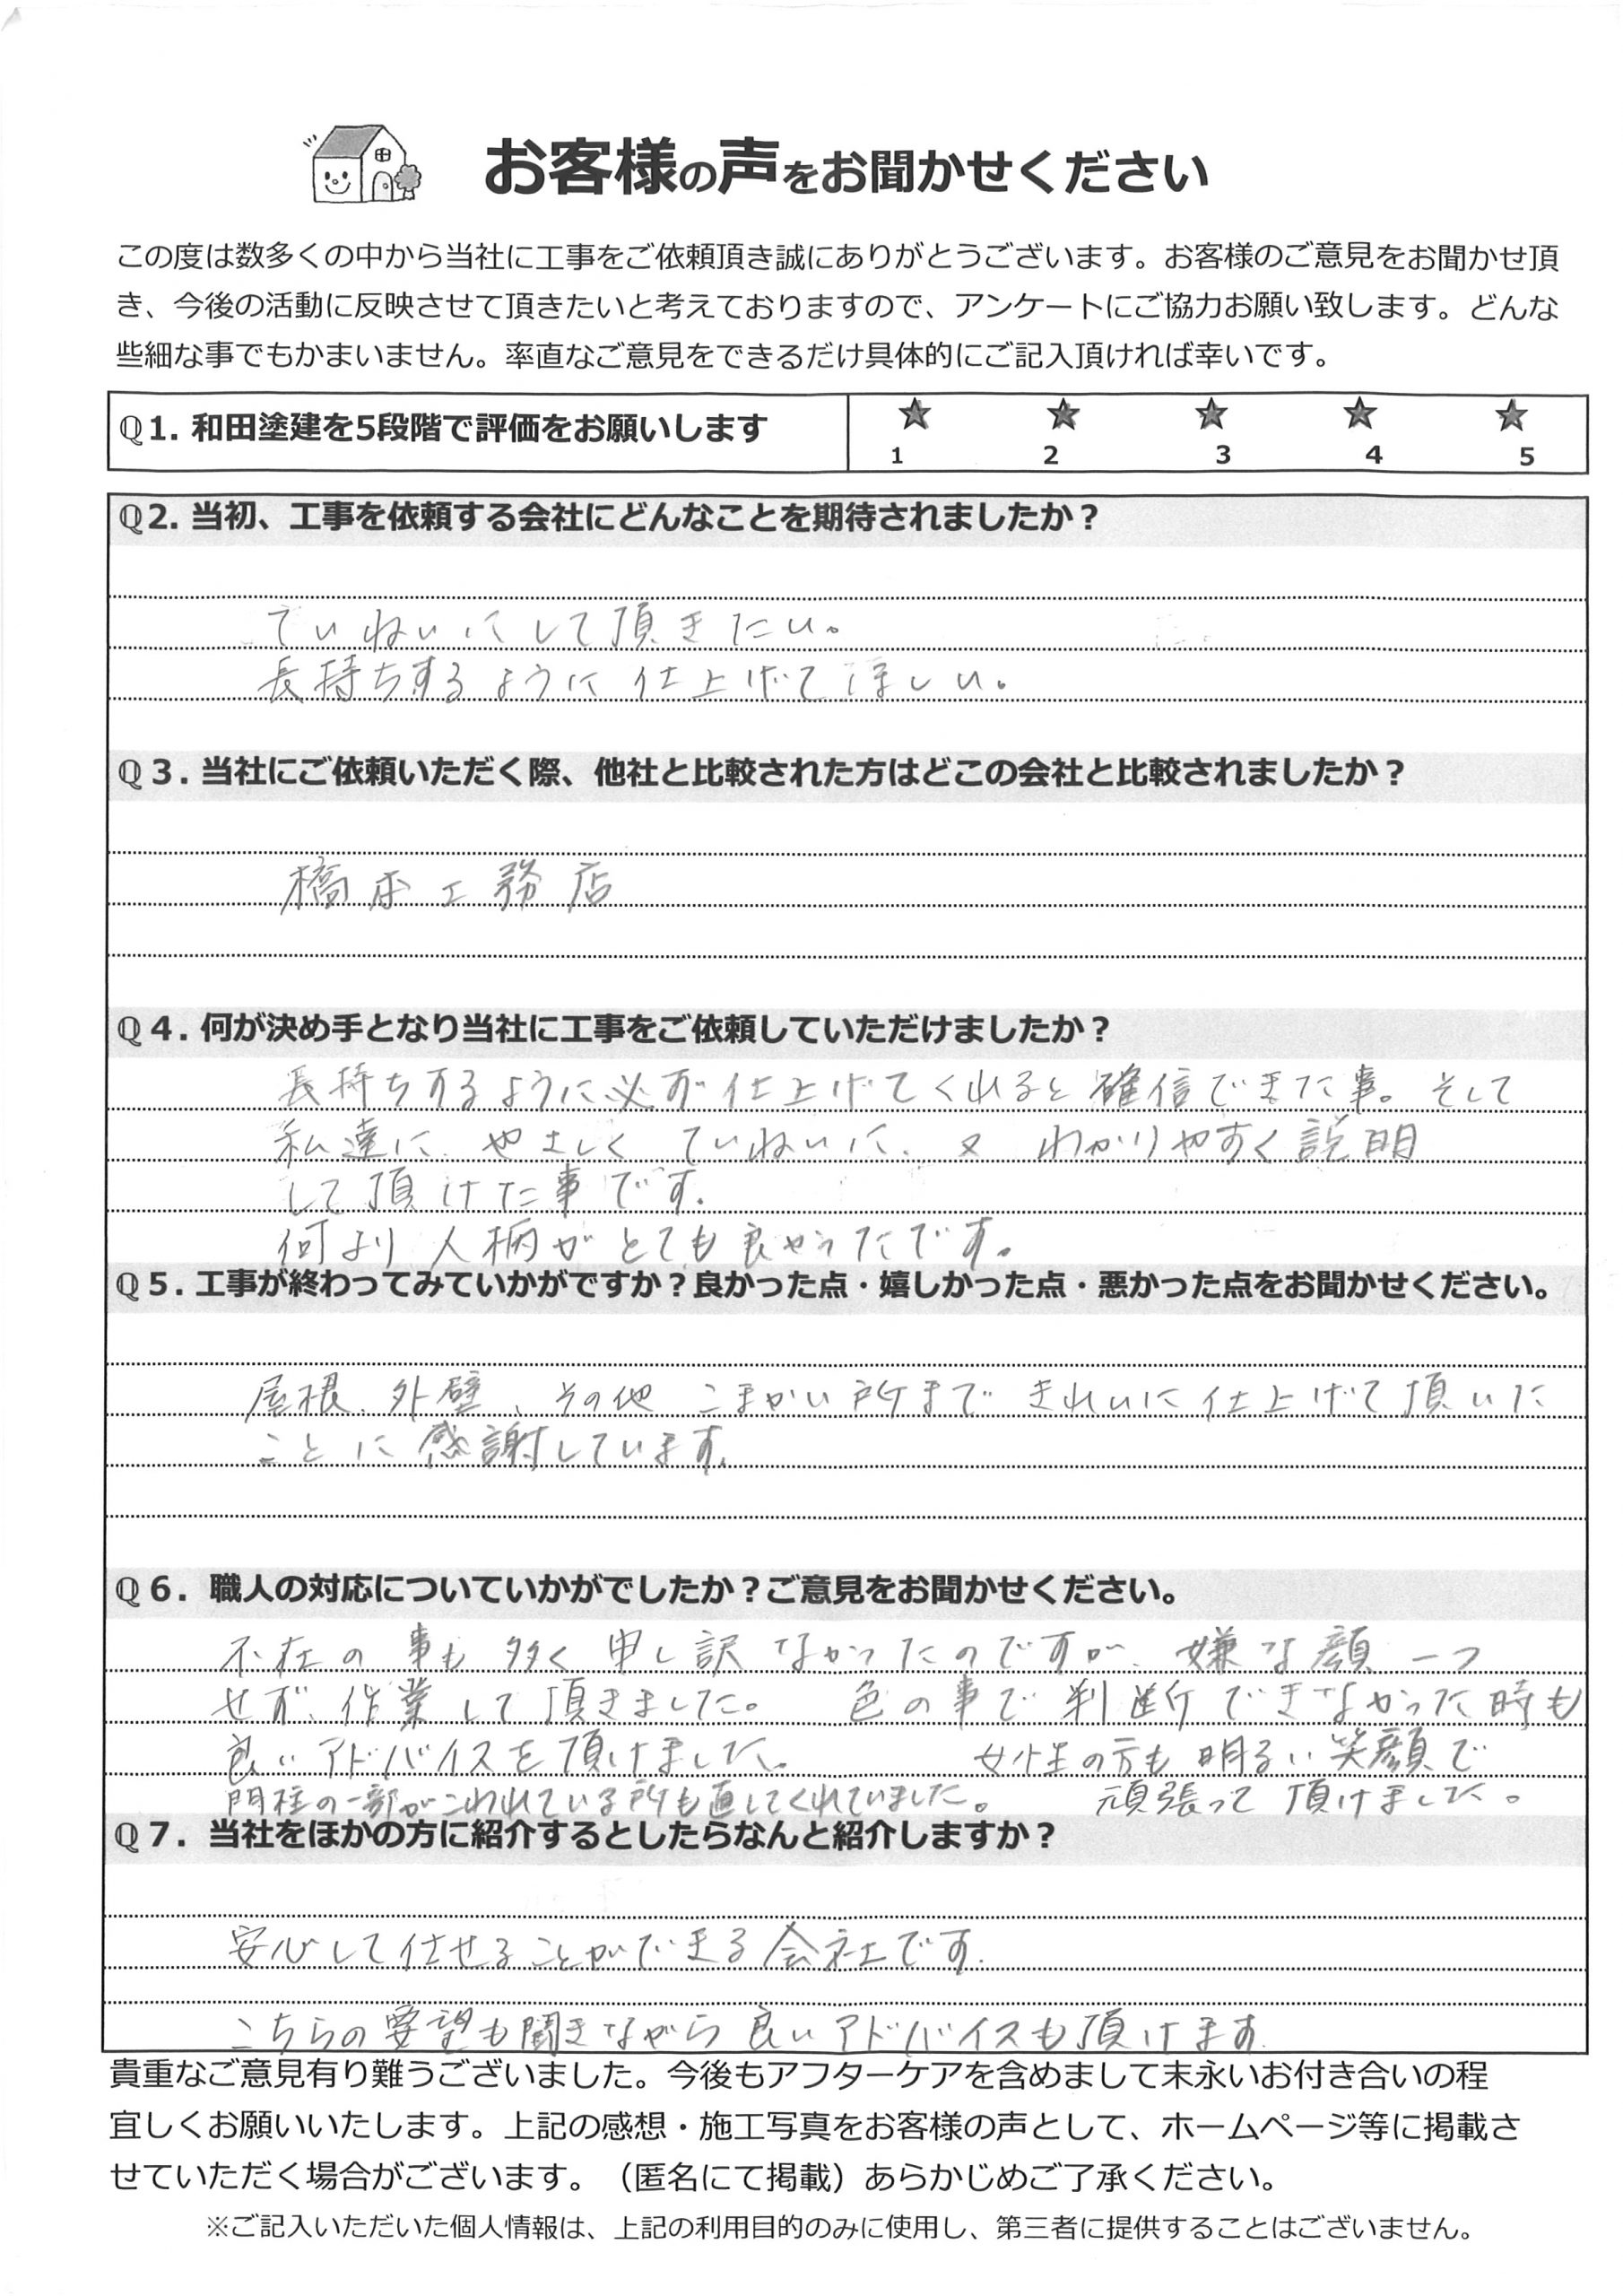 お客様の声をお聞かせください
この度は数多くの中から当社に工事をご依頼頂き誠にありがとうございます。お客様のご意見をお聞かせ頂
き、今後の活動に反映させて頂きたいと考えておりますので、アンケートにご協力お願い致します。どんな
些細な事でもかまいません。率直なご意見をできるだけ具体的にご記入頂ければ幸いです。
Q1. 和田塗建を5段階で評価をお願いします ★ ★ ★ ★ ★
1 2 3 4 5
Q2. 当初、工事を依頼する会社にどんなことを期待されましたか？
ていねいにして頂きたい。
長持ちするように仕上げてほしい。
Q3. 当社にご依頼いただく際、他社と比較された方はどこの会社と比較されましたか？
橋本工務店
Q4. 何が決め手となり当社に工事をご依頼していただけましたか？
長持ちするように必ず仕上げてくれると確信できた事。そして
私達に、やさしく ていねいに、又 わかりやすく説明
して頂けた事です。
何より人柄がとても良かったです。
Q5. 工事が終わってみていかがですか？良かった点・嬉しかった点・悪かった点をお聞かせください。
屋根、外壁、その他 こまかい所まで きれいに仕上げて頂いた
ことに感謝しています。
Q6. 職人の対応についていかがでしたか？ご意見をお聞かせください。
不在の事も多く申し訳なかったのですが、嫌な顔一つ
せず、作業して頂きました。 色の事で判断できなかった時も
良いアドバイスを頂けました。 女性の方も明るい笑顔で
門柱の一部がこわれている所も直してくれていました。 頑張って頂けました。
Q7. 当社をほかの方に紹介するとしたらなんと紹介しますか？
安心して任せることができる会社です。
こちらの要望も聞きながら良いアドバイスも頂けます
貴重なご意見有り難うございました。今後もアフターケアを含めまして末永いお付き合いの程
宜しくお願いいたします。上記の感想・施工写真をお客様の声として、ホームページ等に掲載さ
せていただく場合がございます。（匿名にて掲載）あらかじめご了承ください。
※ご記入いただいた個人情報は、上記の利用目的のみに使用し、第三者に提供することはございません。